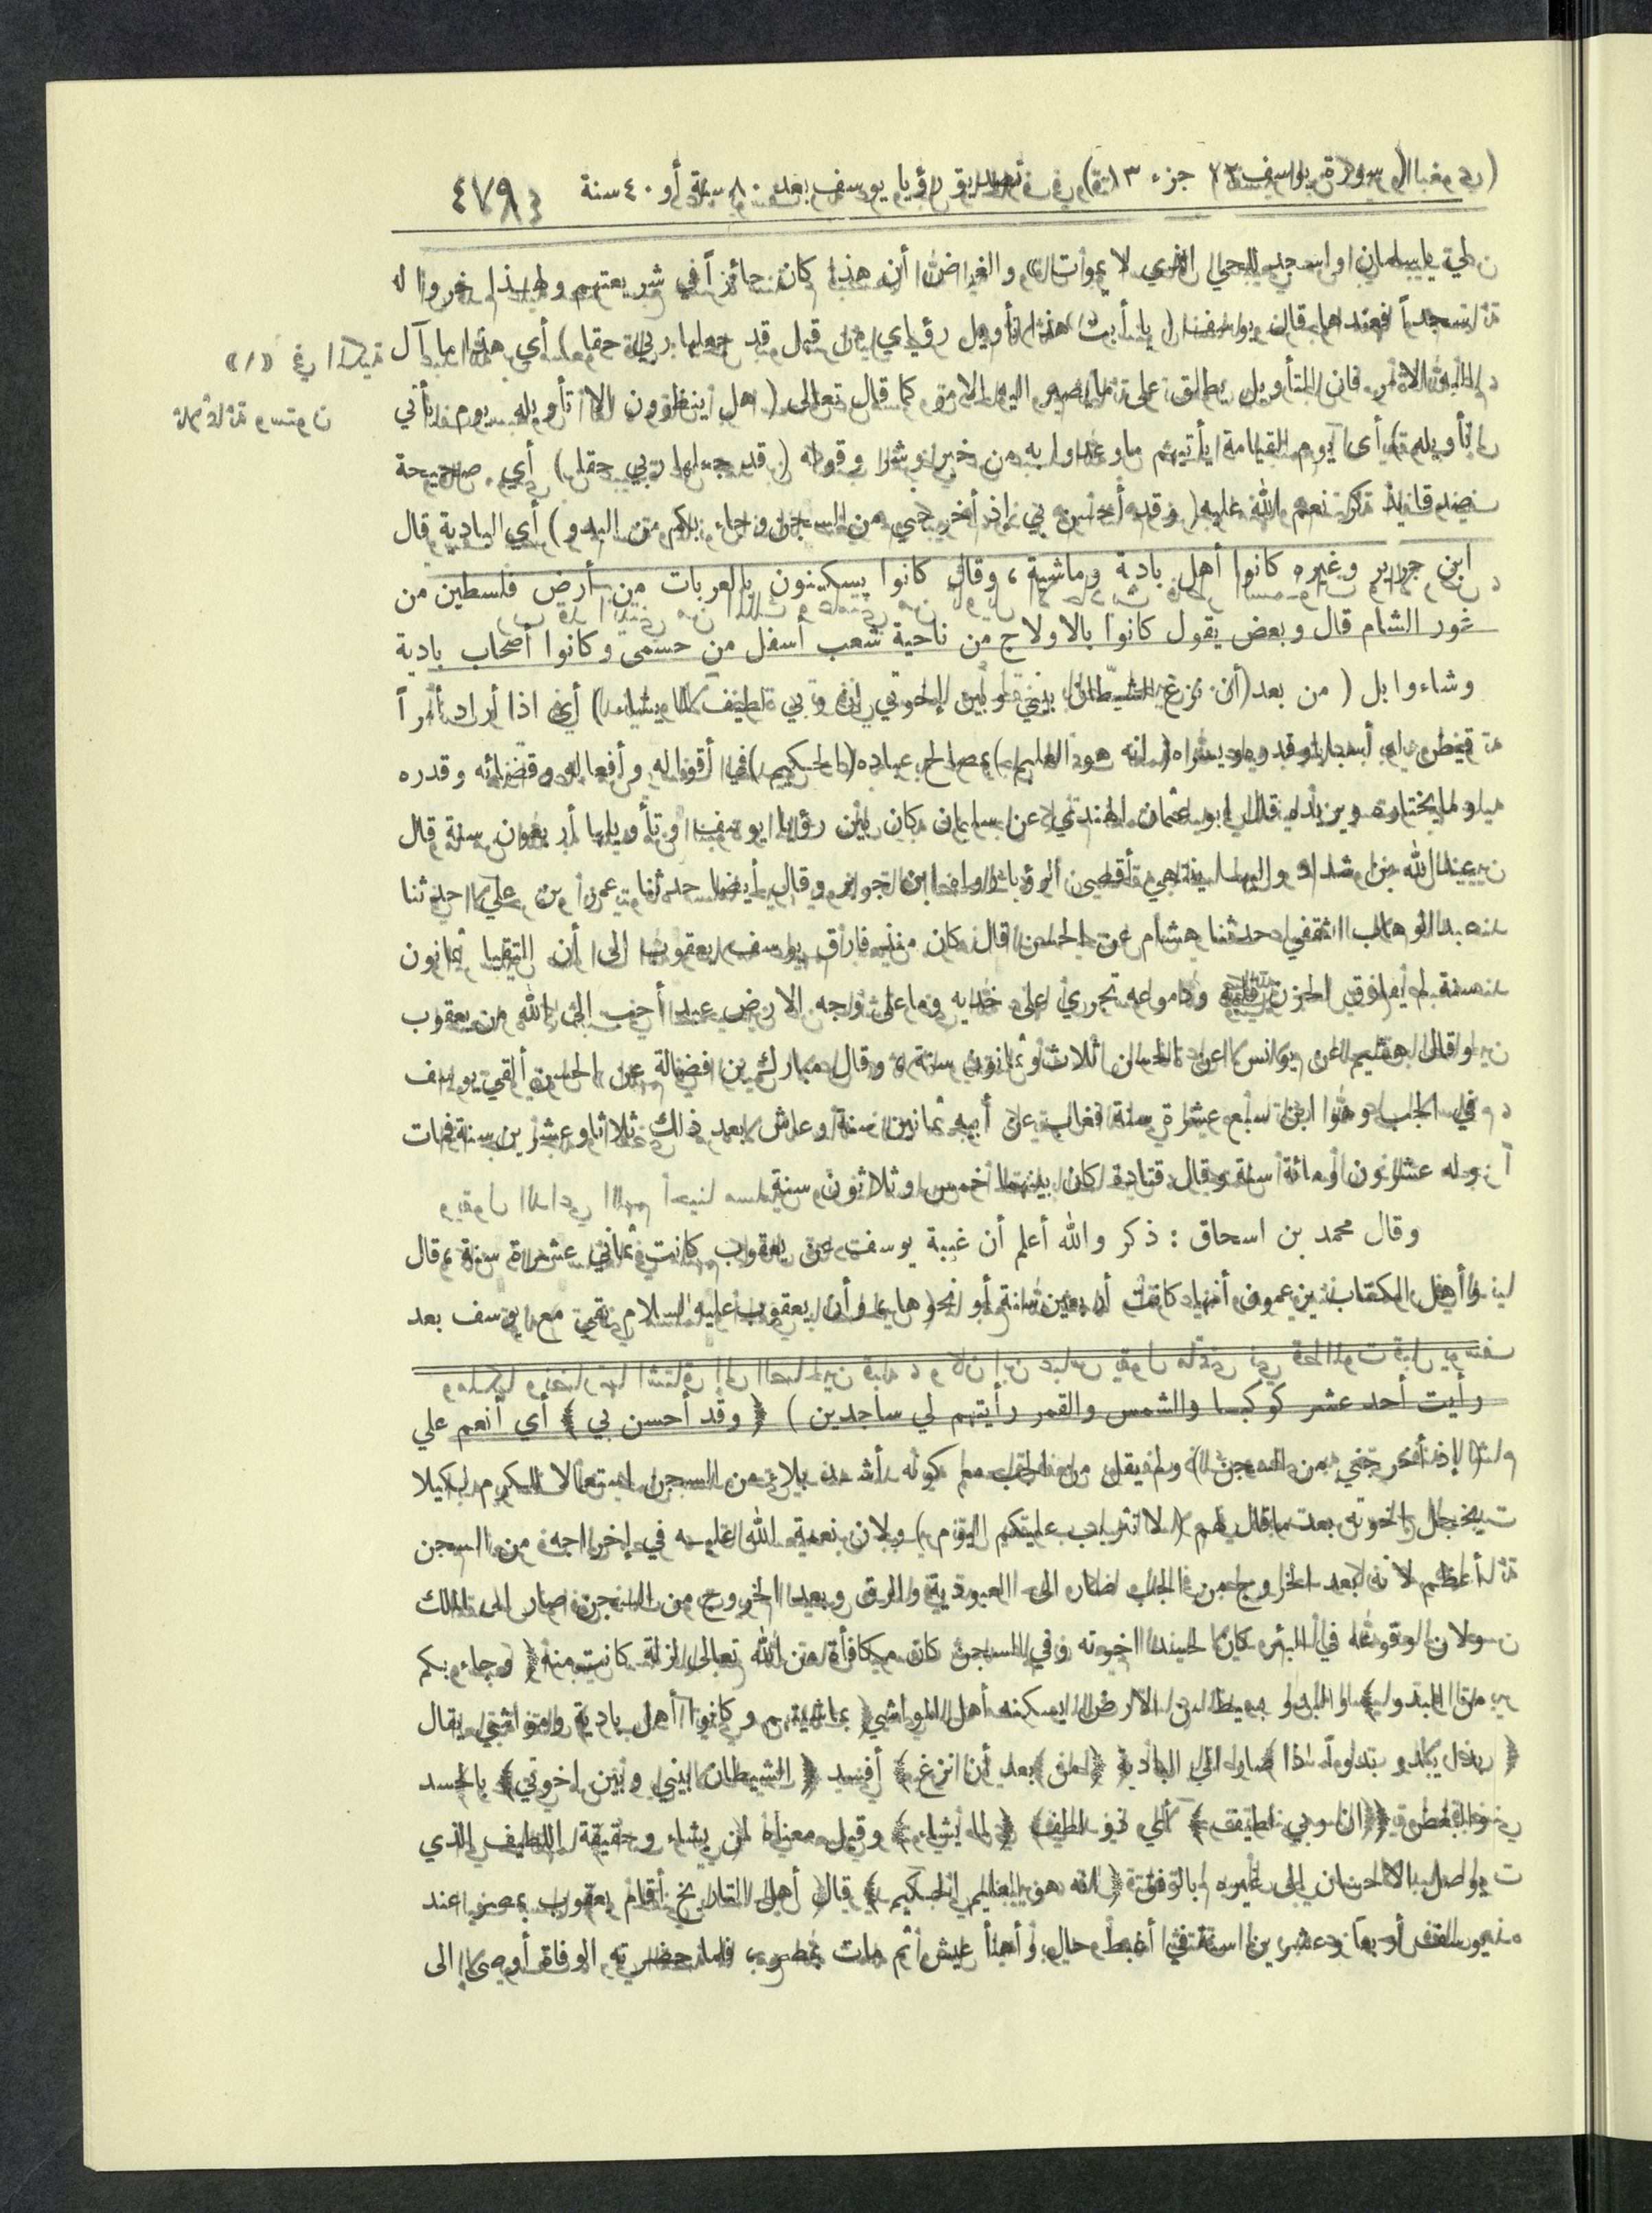 (سورة يوسف ١٢ جزء ١٣) تصديق رؤيا يوسف بعد ٨٠ سنة أو ٤٠ سنة ٤٧٩
يا سلمان واسجد للحي الذي لا يموت » والغرض أن هذا كان جائزاً في شريعتهم ولهذا خروا له
سجداً فعندها قال يوسف ( يا أبت هذا تأويل رؤياي من قبل قد جعلها ربي حقا ) أي هذا ما آل
اليه الامر فان التأويل يطلق على ما يصير اليه الامر كما قال تعالى ( هل ينظرون الا تأويله يوم يأتي
تأويله ) أي يوم القيامة يأتيهم ما وعدوا به من خير وشر وقوله ( قد جعلها ربي حقا ) أي صحيحة
صدقا يذكر نعم الله عليه ( وقد أحسن بي إذ أخرجني من السجن وجاء بكم من البدو ) أي البادية قال
ابن جرير وغيره كانوا أهل بادية وماشية ، وقال كانوا يسكنون بالعربات من أرض فلسطين من
غور الشام قال وبعض يقول كانوا بالاولاج من ناحية شعب أسفل من حسمى وكانوا أصحاب بادية
وشاء وابل ( من بعد أن نزغ الشيطان بيني وبين إخوتي إن ربي لطيف لما يشاء ) أي اذا أراد أمراً
قيض له أسبابا وقدره ويسره ( إنه هو العليم ) بمصالح عباده ( الحكيم ) في أقواله وأفعاله وقضائه وقدره
وما يختاره ويريده قال ابو عثمان النهدي عن سلمان كان بين رؤيا يوسف وتأويلها أربعون سنة قال
عبد الله بن شداد واليها ينتهي أقصى الرؤيا رواه ابن جرير وقال أيضا حدثنا عمرو بن علي حدثنا
عبد الوهاب الثقفي حدثنا هشام عن الحسن قال كان منذ فارق يوسف يعقوب الى أن التقيا ثمانون
سنة لم يفارق الحزن قلبه ودموعه تجري على خديه وما على وجه الارض عبد أحب الى الله من يعقوب
وقال هشيم عن يونس عن الحسن ثلاث وثمانون سنة ، وقال مبارك بن فضالة عن الحسن ألقي يوسف
في الجب وهو ابن سبع عشرة سنة فغاب عن أبيه ثمانين سنة وعاش بعد ذلك ثلاثا وعشرين سنة فمات
وله عشرون ومائة سنة وقال قتادة كان بينهما خمس وثلاثون سنة
وقال محمد بن اسحاق : ذكر والله أعلم أن غيبة يوسف عن يعقوب كانت ثماني عشرة سنة قال
وأهل الكتاب يزعمون أنها كانت أربعين سنة أو نحوها وأن يعقوب عليه السلام بقي مع يوسف بعد
رأيت أحد عشر كوكبا والشمس والقمر رأيتهم لي ساجدين ) ﴿ وقد أحسن بي ﴾ أي أنعم علي
﴿ إذ أخرجني من السجن ﴾ ولم يقل من الجب مع كونه أشد بلاء من السجن استعمالا للكرم لكيلا
يخجل اخوته بعد ما قال لهم ( لا تثريب عليكم اليوم ) ولان نعمة الله عليه في إخراجه من السجن
أعظم لانه بعد الخروج من الجب صار الى العبودية والرق وبعد الخروج من السجن صار الى الملك
ولان وقوعه في البئر كان لحسد اخوته وفي السجن كان مكافأة من الله تعالى لزلة كانت منه ﴿ وجاء بكم
من البدو ﴾ والبدو بسيط من الارض يسكنه أهل المواشي بماشيتهم وكانوا أهل بادية ومواشي يقال
بدا يبدو بدواً اذا صار الى البادية ﴿ من بعد أن نزغ ﴾ أفسد ﴿ الشيطان بيني وبين اخوتي ﴾ بالحسد
والبغض ﴿ ان ربي لطيف ﴾ أي ذو لطف ﴿ لما يشاء ﴾ وقيل معناه لمن يشاء وحقيقة اللطيف الذي
يوصل الاحسان الى غيره بالرفق ﴿ انه هو العليم الحكيم ﴾ قال أهل التاريخ أقام يعقوب بمصر عند
يوسف أربعا وعشرين سنة في أغبط حال وأهنأ عيش ثم مات بمصر ، فلما حضرته الوفاة أوصى الى